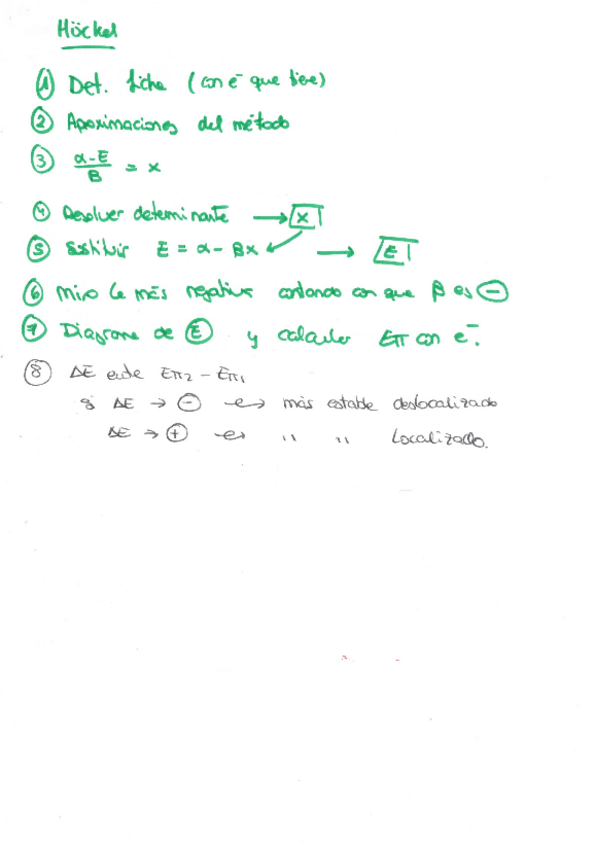 Höckel
① Det. ficha (con e⁻ que tiene)
② Aproximaciones del método
③ α-E / B = x
④ Resolver determinante → x
⑤ Sustituir E = α - Bx → E
⑥ Miro la más negativa contando con que β es ⊖
⑦ Diagrama de Ⓔ y calcular Eπ con e⁻.
⑧ ΔE entre Eπ₂ - Eπ₁
si ΔE → ⊖ más estable deslocalizado
ΔE → ⊕ " " Localizado.